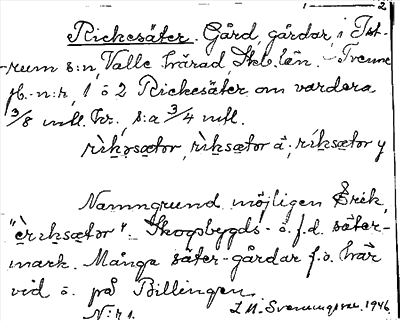 1 2
Rickesäter. Gård, gårdar, i Ist-
rum s:n, Valle härad, Skb. län. - Tvenne
jb.-n:r, 1 o 2 Rickesäter om vardera
3/8 mtl. kr., s:a 3/4 mtl.
rìkəsætər, rìksætər å; ríksætər y
Namngrund möjligen Erik,
"èriksætər". Skogsbygds- o. f.d. säter-
mark. Många säter-gårdar f.ö. här
vid o. på Billingen.
N:r 1. L. M. Svenungsson. 1946